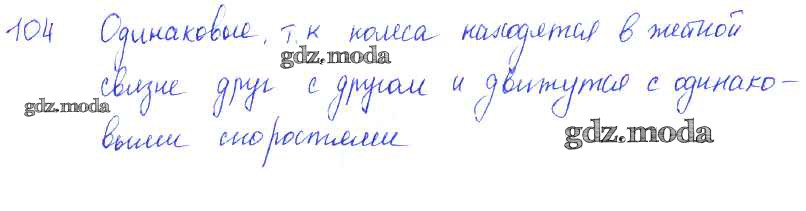 104 Одинаковые, т.к колеса находятся в жесткой
gdz.moda
связке друг с другом и движутся с одинако-
gdz.moda
выми скоростями
gdz.moda